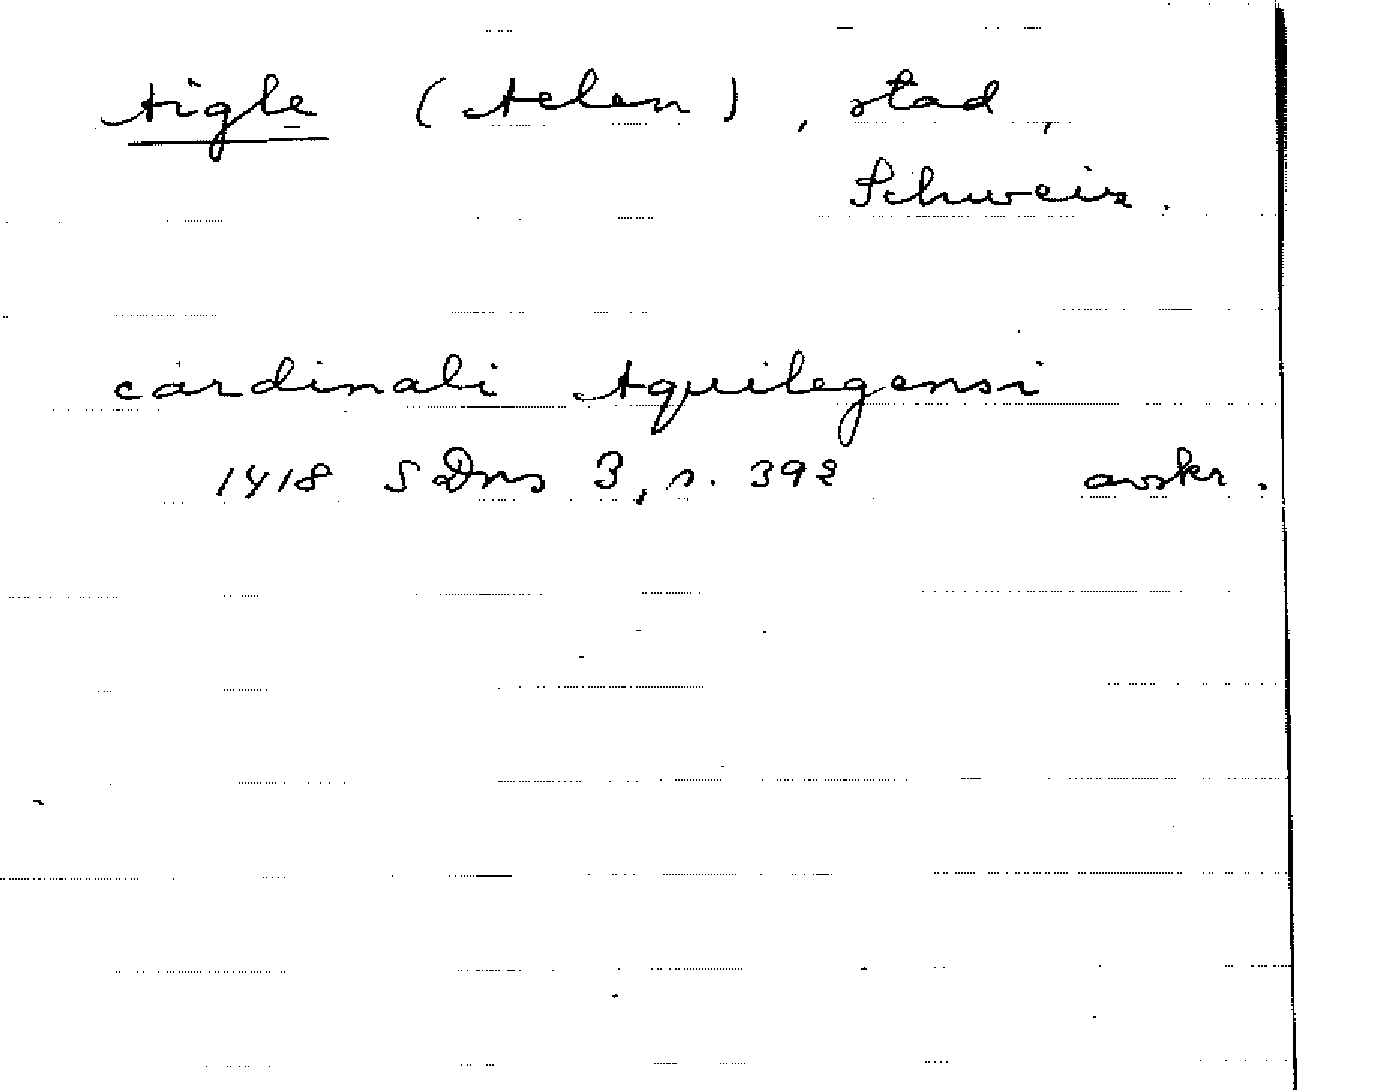 Aigle (Aelen), stad,
Schweiz.
cardinali Aquilegensi
1418 SDns 3, s. 392 avskr.